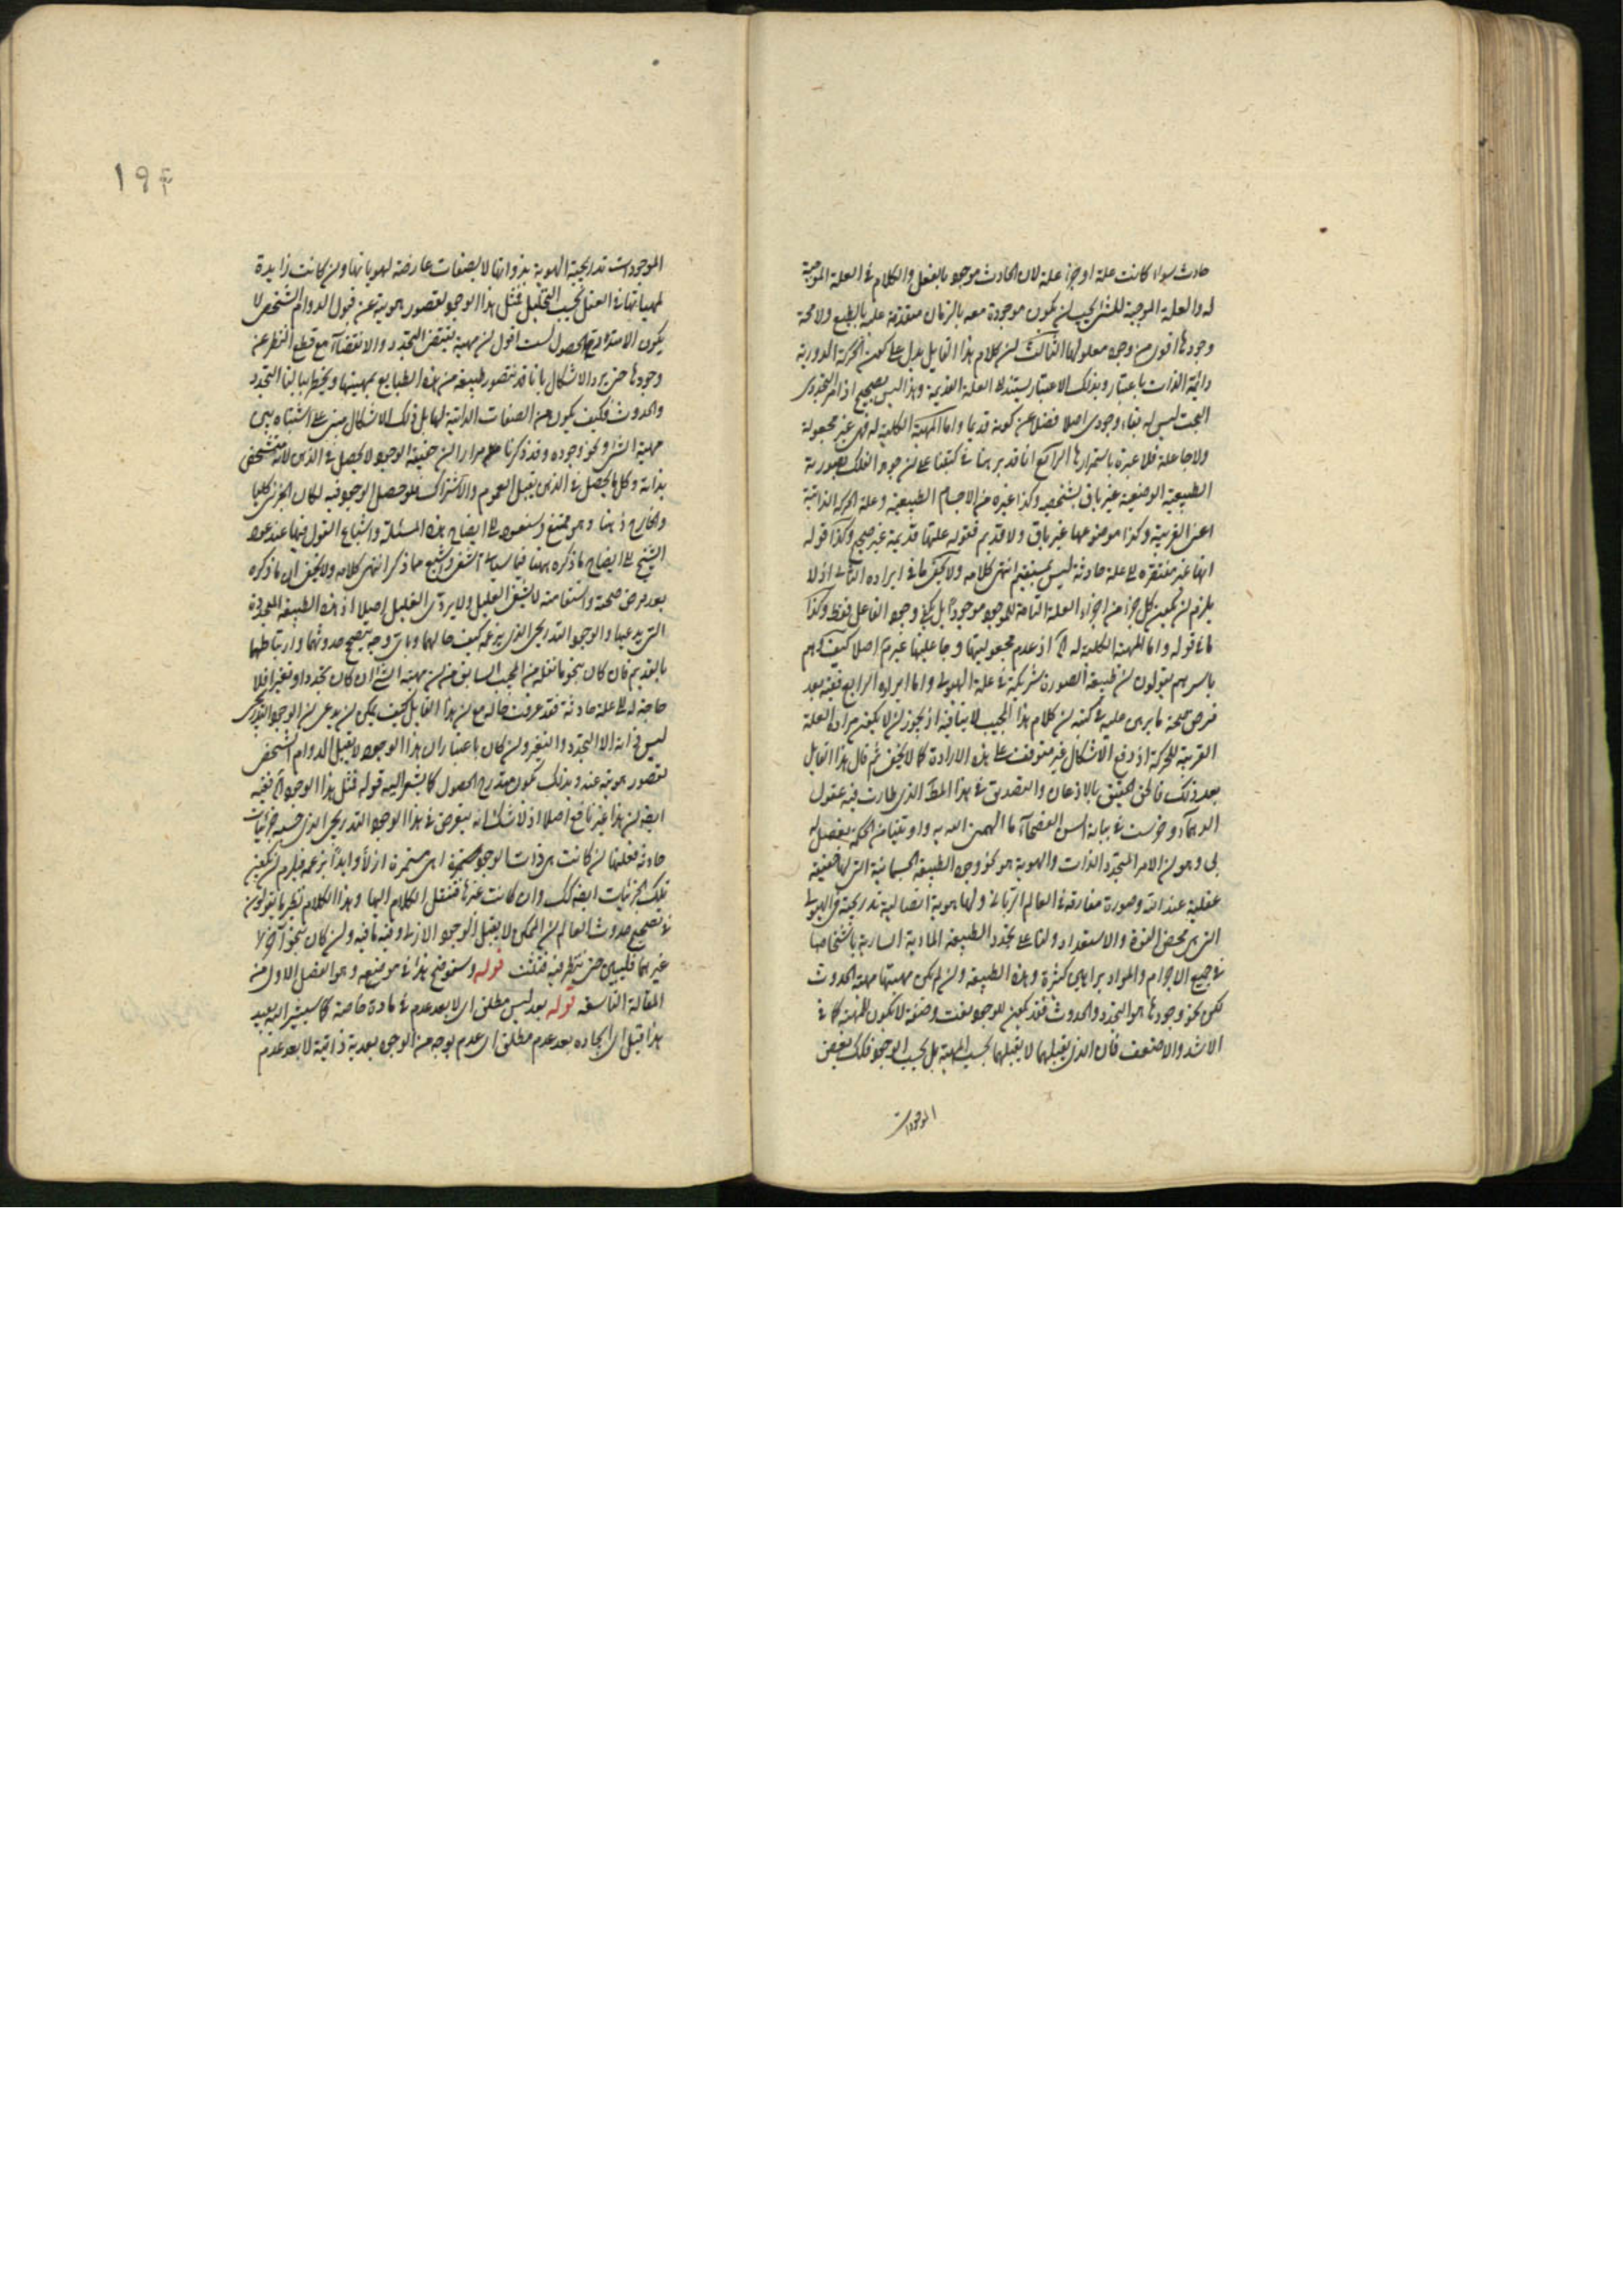 حادث سواء كانت علة او جزء علة لان الحادث موجود بالفعل والكلام في العلة الموجبة
له والعلة الموجبة للشئ يجب ان يكون موجودة معه بالزمان متقدمة عليه بالطبع ولا محة
وجودها اقوى من وجود معلولها الثالث ان كلام هذا القايل يدل على كون الحركة الدورية
دائمة الذات باعتبار وبذلك الاعتبار يستند الى العلة القديمة وهذا ليس بصحيح اذ الامر التجددى
البحت ليس له بقاء وجودى اصلا فضلا عن كونه قديما واما المهية الكلية له فهى غير مجعولة
ولا جاعلة فلا عبرة باستمرارها الرابع انا قد برهنا في كتبنا على ان جوهر الفلك بصورته
الطبيعية الوضعية غير باق بشخصه وكذا غيره من الاجسام الطبيعية وعلة الحركة الذاتية
اعنى القريبة وكذا موضوعها غير باق ولا قديم فقوله علتها قديمة غير صحيح وكذا قوله
انها غير مفتقرة الى علة حادثة ليس بمستقيم انتهى كلامه ولا يخفى ما في ايراده الثانى اذ لا
يلزم ان يكون كل جزء من اجزاء العلة التامة للموجود موجوداً بل يكفى وجود الفاعل فقط وكذا
ما في قوله واما المهية الكلية له الخ اذ عدم مجعوليتها وجاعليتها غير اصلا كيف وهم
باسرهم يقولون ان طبيعة الصورة شريكة في علة الهيولى واما ايراده الرابع ففيه بعد
فرض صحة ما برهن عليه في كتبه ان كلام هذا المجيب لا ينافيه اذ يجوز ان لا يكون مراده العلة
القريبة للحركة اذ دفع الاشكال غير متوقف على هذه الارادة كما لا يخفى ثم قال هذا القايل
بعد ذلك فالحق الحقيق بالاذعان والتصديق في هذا المط الذى طارت فيه عقول
الحكماء وخرست في بيانه السن الفصحاء ما الهمنى الله به واوتينا من الحكمة بفضل له
بلى وهو ان الامر المتجدد الذات والهوية هو نحو وجود الطبيعة الجسمانية التى لها حقيقة
عقلية عند الله وصورة مفارقة في العالم الربانى ولها هوية اتصالية تدريجية في الهيولى
التى هى محض القوة والاستعداد ولنا على تجدد الطبيعة المادية السارية باشخاصها
في جميع الاجرام والمواد براهين كثيرة وهذه الطبيعة وان لم يكن مهيتها مهية الحدوث
لكن نحو وجودها هو التجدد والحدوث فقد يكون للوجود نعت وصفة لا يكون للمهية كما في
الاشد والاضعف فان الذى يقبلهما لا يقبلهما بحسب المهية بل بحسب الوجود فكذلك بعض
الموجودات
١٩٤
الموجودات تدريجية الهوية بذواتها لا بصفات عارضة لهوياتها وان كانت زايدة
لمهياتها في العقل بحسب التحليل فمثل هذا الوجود لقصور هويته عن قبول الدوام الشخصى لا
يكون الا متدرج الحصول لست اقول ان مهيته يقتضى التجدد والانقضاء مع قطع النظر عن
وجودها حتى يرد الاشكال بانا قد نتصور طبيعة من هذه الطبايع بمهيتها ولا يخطر ببالنا التجدد
والحدوث فكيف يكون من الصفات الذاتية لها بل ذلك الاشكال مبنى على اشتباه بين
مهية الشئ ونحو وجوده وقد ذكرنا مرارا ان حقيقة الوجود لا يحصل في الذهن لانه متشخص
بذاته وكل ما يحصل في الذهن يقبل العموم والاشتراك فلو حصل الوجود فيه لكان الجزئى كليا
والخارج ذهنا وهو ممتنع وسنعود الى ايضاح هذه المسئلة واشباع القول فيها عند عود
الشيخ الى ايضاح ما ذكره ههنا فيما سياتى اشفى واشبع مما ذكر انتهى كلامه ولا يخفى ان ما ذكره
بعد فرض صحته واستقامته لا يشفى العليل ولا يروى الغليل اصلا اذ هذه الطبيعة المتجددة
التى يدعيها والوجود التدريجى الذى يزعمه كيف حالهما وباى وجه يصح حدوثهما وارتباطهما
بالقديم فان كان بنحو ما نقله من المجيب السابق من ان مهية الشئ ان كان تجددا وتغيرا فلا
حاجة له الى علة حادثة فقد عرفت حاله مع ان هذا القايل كيف يمكن ان يدعى ان الوجود التدريجى
ليس ذاته الا التجدد والتغير وان كان باعتبار ان هذا الوجود لا يقبل الدوام الشخصى
لقصور هويته عنه وبذلك يكون متدرج الحصول كما يشعر اليه قوله فمثل هذا الوجود الخ ففيه
ايضا ان هذا غير نافع اصلا اذ لا شك انه يفرض في هذا الوجود التدريجى الذى حسبه جزئيات
حادثة فعلتها ان كانت هى ذات الوجود اى مستمرة ازلاً وابداً بزعمه فيلزم ان يكون
تلك الجزئيات ايضا كذلك وان كانت غيرها فننقل الكلام اليها وهذا الكلام نظير ما يقولون
في تصحيح حدوث العالم ان الممكن لا يقبل الوجود الازلى وفيه ما فيه وان كان بنحو آخر لا
غيرهما فليبين حتى ينظر فيه فتثبت قوله وسنوضح هذا في موضعه وهو الفصل الاول من
المقالة التاسعة قوله بعد ليس مطلق اى لا بعد عدم في مادة خاصة كما سيشير اليه بعيد
هذا قيل اى ايجاده بعد عدم مطلق اى عدم بوجه من الوجوه بعدية ذاتية لا بعد عدم